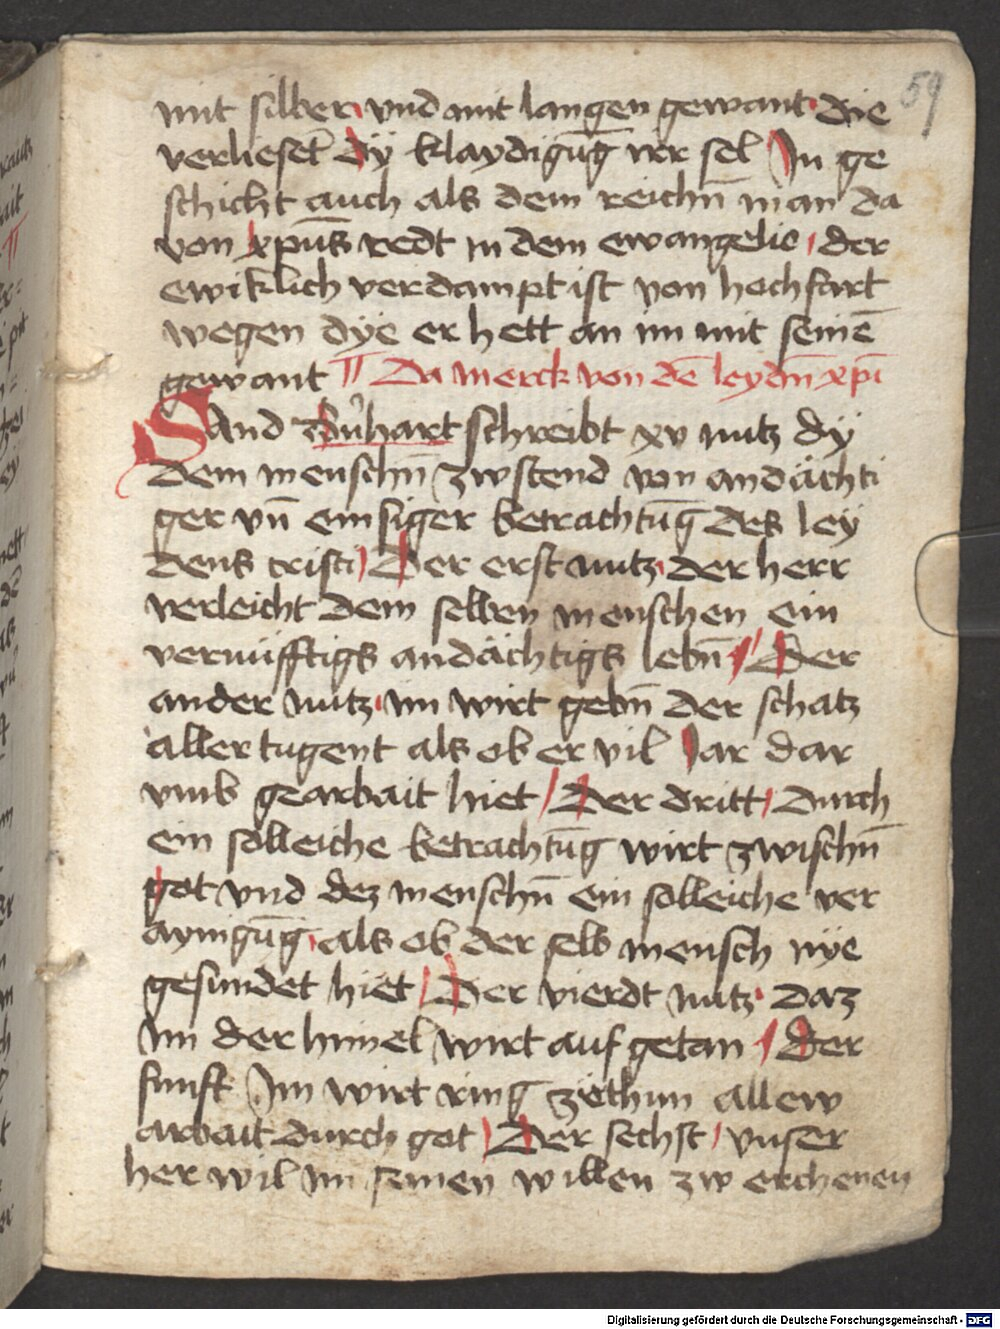 59
mit silber vnd mit langen gewant die
verlieset̄ dy klaydigūg irr sel In ge
schicht auch als dem reichn̄ man da
von xpūs redt in dem ewangelio der
ewiklich verdampt ist von hochfart
wegen dye er hett an im mit seinē
gewant ¶ Da merck von dē leydn̄ xpi
Sand schreibt xv nutz dy
dem menschn̄ zw stend von andächti
ger vn̄ einsiger betrachtūg des ley
dens cristi Der erst nutz der herr
verleicht dem selben menschen ein
vernüfftigs andächtigs lebn̄ Der
ander nutz im wirt gebn̄ der schatz
aller tugent als ob er vil Jar dar
vmb gearbait hiet Der dritt durch
ein solleiche betrachtūg wirt zwischn̄
got vnd dez menschn̄ ein solleiche ver
aynigūg als ob der selb mensch nye
gesundet hiet Der vierdt nutz daz
im der himel wirt auf getan Der
funft Im wirt ring zethun allew
arbait durch got Der sechst vnser
her wil im seinen willen zw erchenen
Digitalisierung gefördert durch die Deutsche Forschungsgemeinschaft - DFG